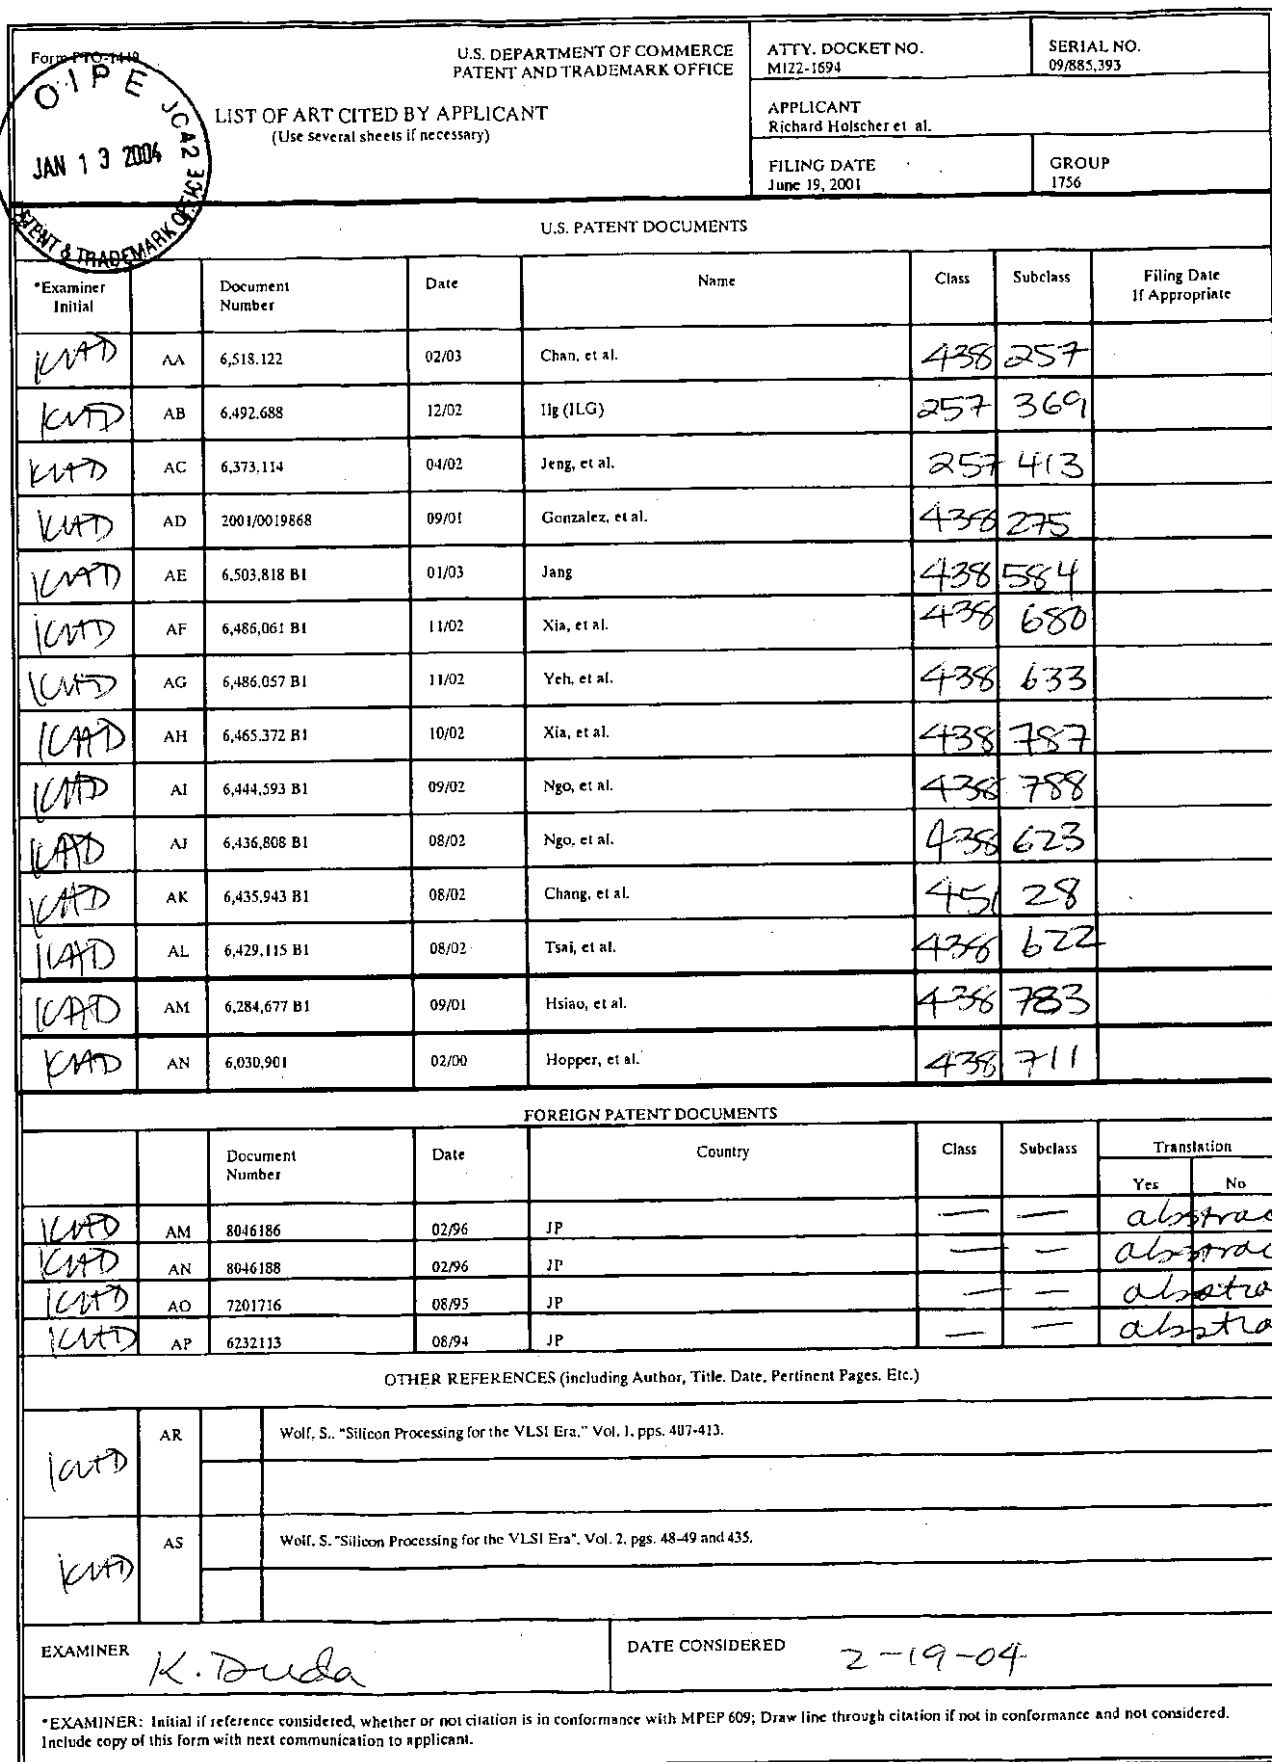 Form PTO-1449
U.S. DEPARTMENT OF COMMERCE
PATENT AND TRADEMARK OFFICE
ATTY. DOCKET NO.
MI22-1694
SERIAL NO.
09/885,393
OIPE JC42
JAN 13 2004
PATENT & TRADEMARK OFFICE
LIST OF ART CITED BY APPLICANT
(Use several sheets if necessary)
APPLICANT
Richard Holscher et al.
FILING DATE
June 19, 2001
GROUP
1756
U.S. PATENT DOCUMENTS
*Examiner Initial Document Number Date Name Class Subclass Filing Date If Appropriate
KMD AA 6,518.122 02/03 Chan, et al. 438 257
KMD AB 6,492.688 12/02 Ilg (ILG) 257 369
KMD AC 6,373,114 04/02 Jeng, et al. 257 413
KMD AD 2001/0019868 09/01 Gonzalez, et al. 438 275
KMD AE 6,503,818 B1 01/03 Jang 438 584
KMD AF 6,486,061 B1 11/02 Xia, et al. 438 680
KMD AG 6,486,057 B1 11/02 Yeh, et al. 438 633
KMD AH 6,465.372 B1 10/02 Xia, et al. 438 787
KMD AI 6,444,593 B1 09/02 Ngo, et al. 438 788
KMD AJ 6,436,808 B1 08/02 Ngo, et al. 438 623
KMD AK 6,435,943 B1 08/02 Chang, et al. 451 28
KMD AL 6,429,115 B1 08/02 Tsai, et al. 438 622
KMD AM 6,284,677 B1 09/01 Hsiao, et al. 438 783
KMD AN 6,030,901 02/00 Hopper, et al. 438 711
FOREIGN PATENT DOCUMENTS
Document Number Date Country Class Subclass Translation
Yes No
KMD AM 8046186 02/96 JP — — abstrac
KMD AN 8046188 02/96 JP — — abstrac
KMD AO 7201716 08/95 JP — — abstra
KMD AP 6232113 08/94 JP — — abstra
OTHER REFERENCES (including Author, Title. Date, Pertinent Pages. Etc.)
KMD AR Wolf, S.. "Silicon Processing for the VLSI Era," Vol. 1, pps. 407-413.
KMD AS Wolf, S. "Silicon Processing for the VLSI Era", Vol. 2, pgs. 48-49 and 435.
EXAMINER K. Duda DATE CONSIDERED 2-19-04
*EXAMINER: Initial if reference considered, whether or not citation is in conformance with MPEP 609; Draw line through citation if not in conformance and not considered.
Include copy of this form with next communication to applicant.